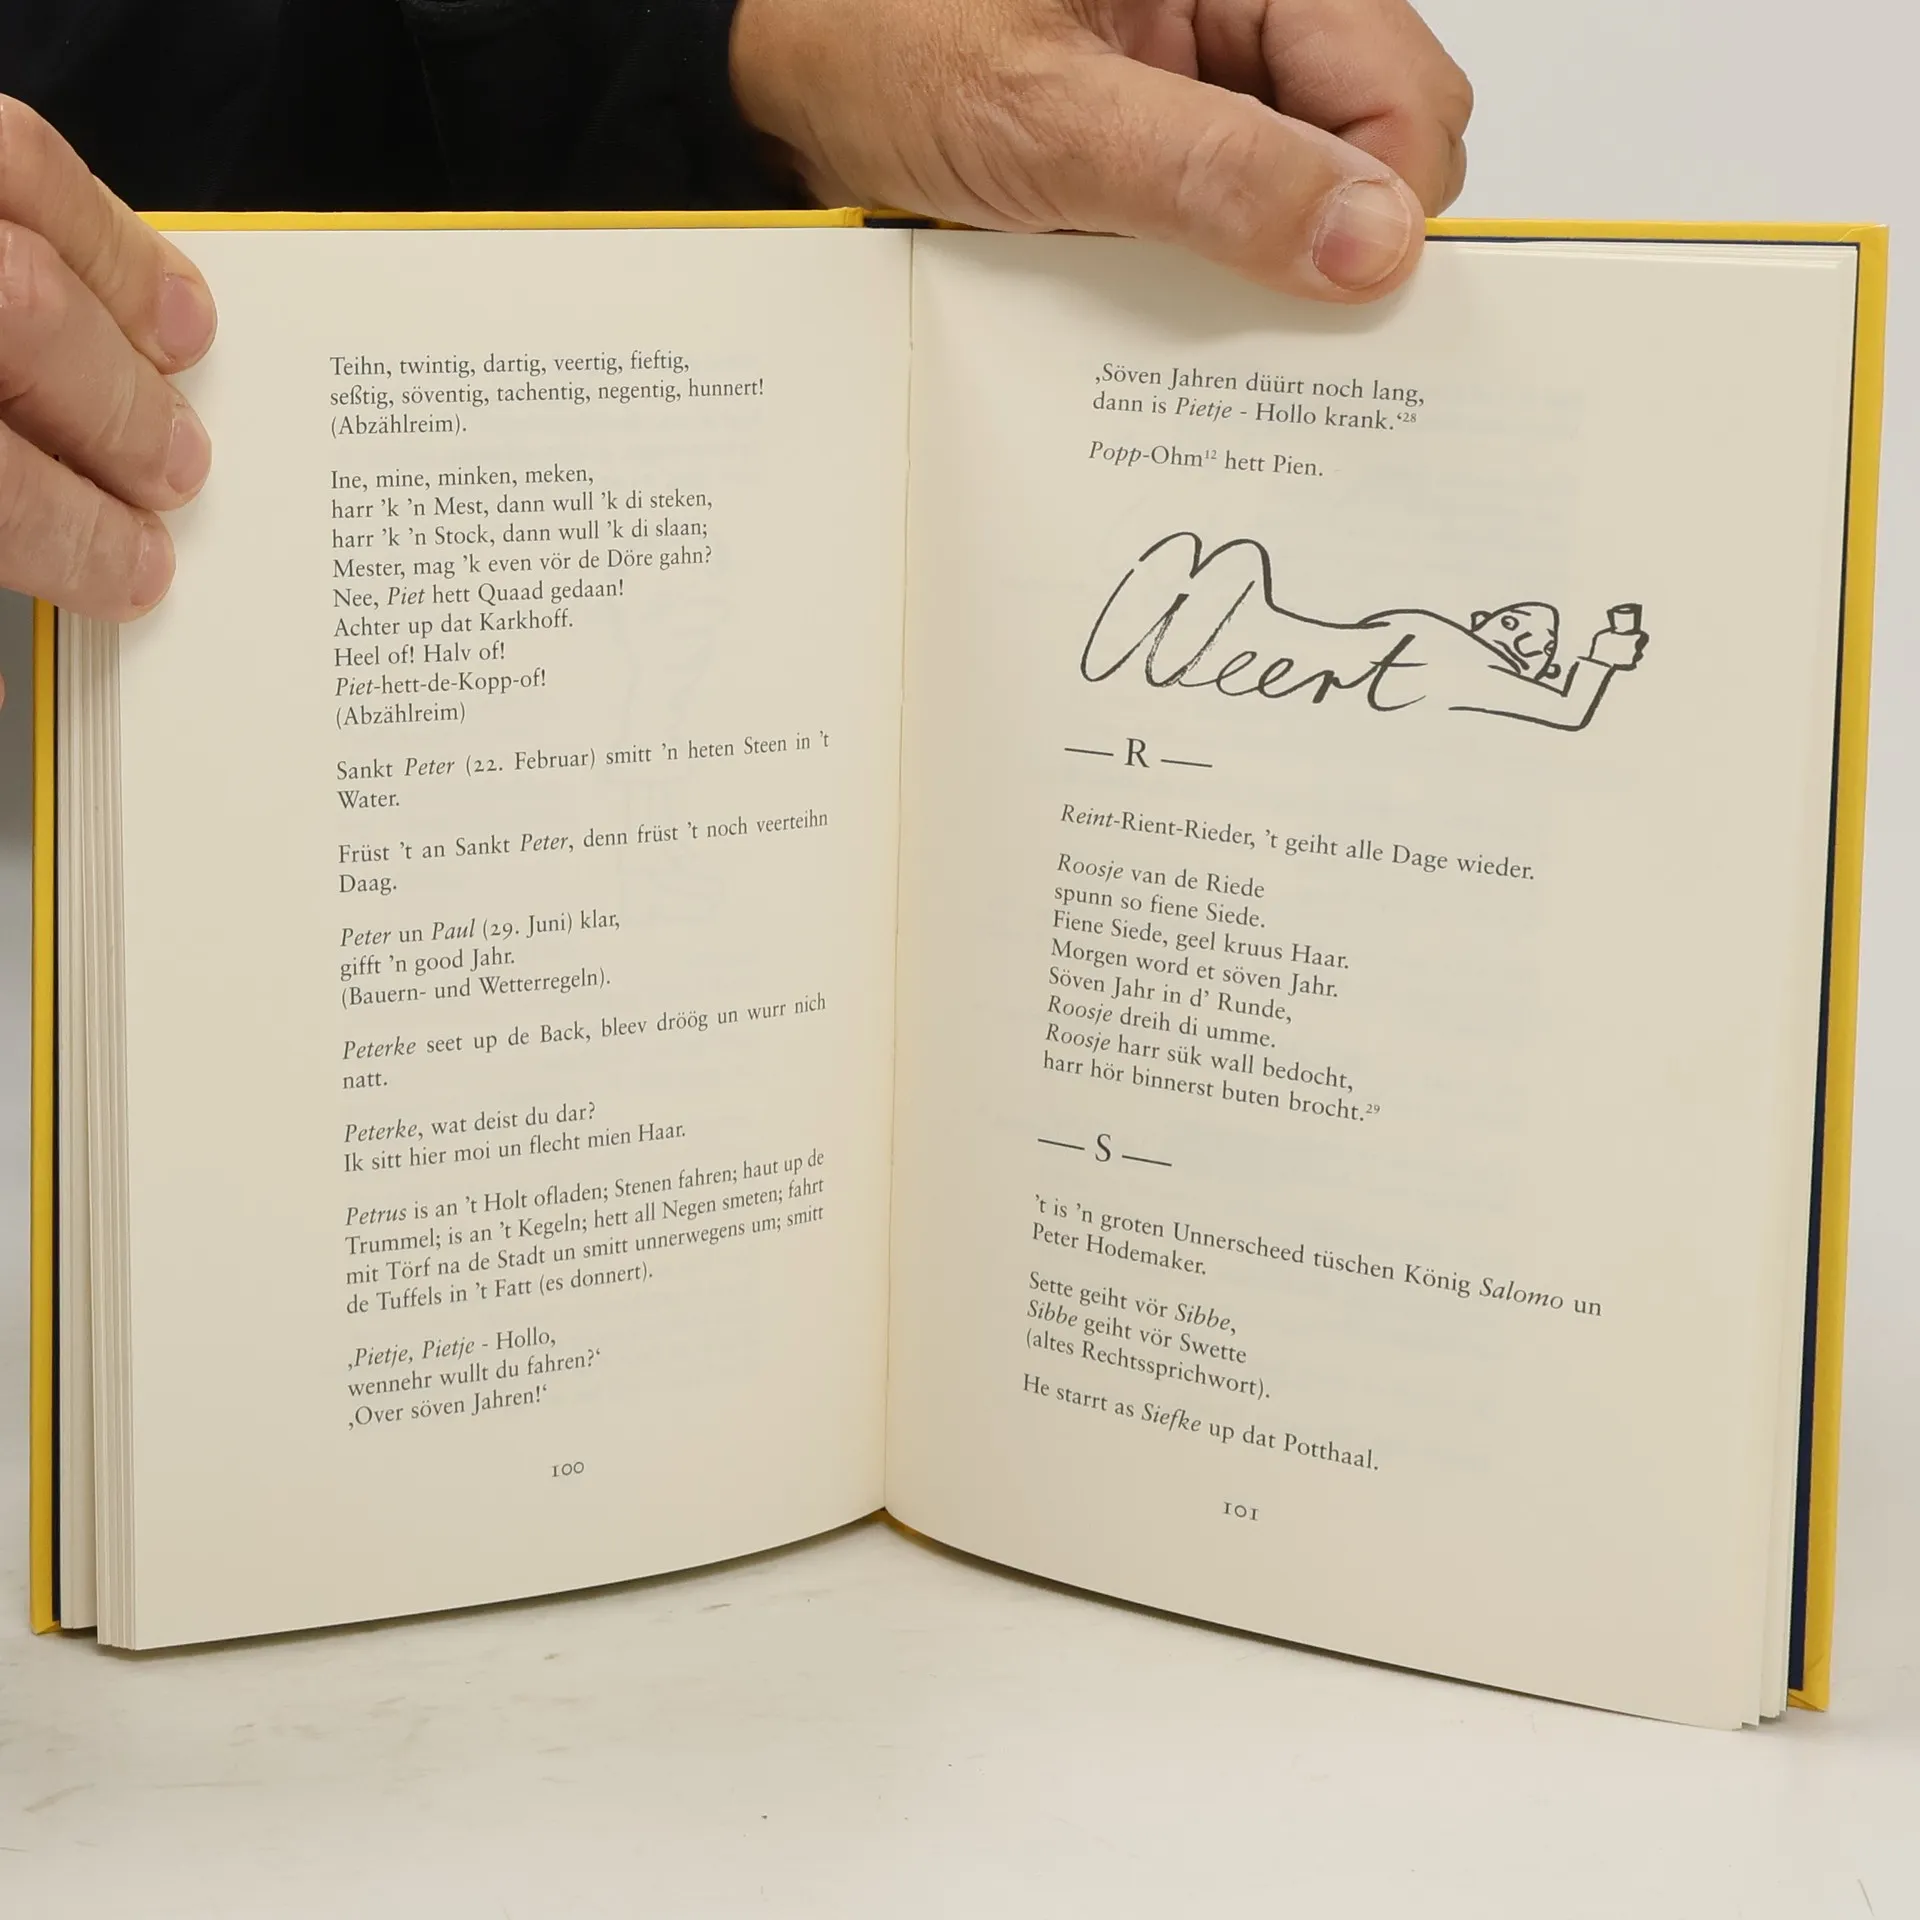 Teihn, twintig, dartig, veertig, fieftig,
seßtig, söventig, tachentig, negentig, hunnert!
(Abzählreim).
Ine, mine, minken, meken,
harr ’k ’n Mest, dann wull ’k di steken,
harr ’k ’n Stock, dann wull ’k di slaan;
Mester, mag ’k even vör de Döre gahn?
Nee, Piet hett Quaad gedaan!
Achter up dat Karkhoff.
Heel of! Halv of!
Piet-hett-de-Kopp-of!
(Abzählreim)
Sankt Peter (22. Februar) smitt ’n heten Steen in ’t
Water.
Früst ’t an Sankt Peter, denn früst ’t noch veerteihn
Daag.
Peter un Paul (29. Juni) klar,
gifft ’n good Jahr.
(Bauern- und Wetterregeln).
Peterke seet up de Back, bleev dröög un wurr nich
natt.
Peterke, wat deist du dar?
Ik sitt hier moi un flecht mien Haar.
Petrus is an ’t Holt ofladen; Stenen fahren; haut up de
Trummel; is an ’t Kegeln; hett all Negen smeten; fahrt
mit Törf na de Stadt un smitt unnerwegens um; smitt
de Tuffels in ’t Fatt (es donnert).
‚Pietje, Pietje - Hollo,
wennehr wullt du fahren?‘
‚Over söven Jahren!‘
100
‚Söven Jahren düürt noch lang,
dann is Pietje - Hollo krank.‘28
Popp-Ohm12 hett Pien.
Weert
— R —
Reint-Rient-Rieder, ’t geiht alle Dage wieder.
Roosje van de Riede
spunn so fiene Siede.
Fiene Siede, geel kruus Haar.
Morgen word et söven Jahr.
Söven Jahr in d’ Runde,
Roosje dreih di umme.
Roosje harr sük wall bedocht,
harr hör binnerst buten brocht.29
— S —
’t is ’n groten Unnerscheed tüschen König Salomo un
Peter Hodemaker.
Sette geiht vör Sibbe,
Sibbe geiht vör Swette
(altes Rechtssprichwort).
He starrt as Siefke up dat Potthaal.
101